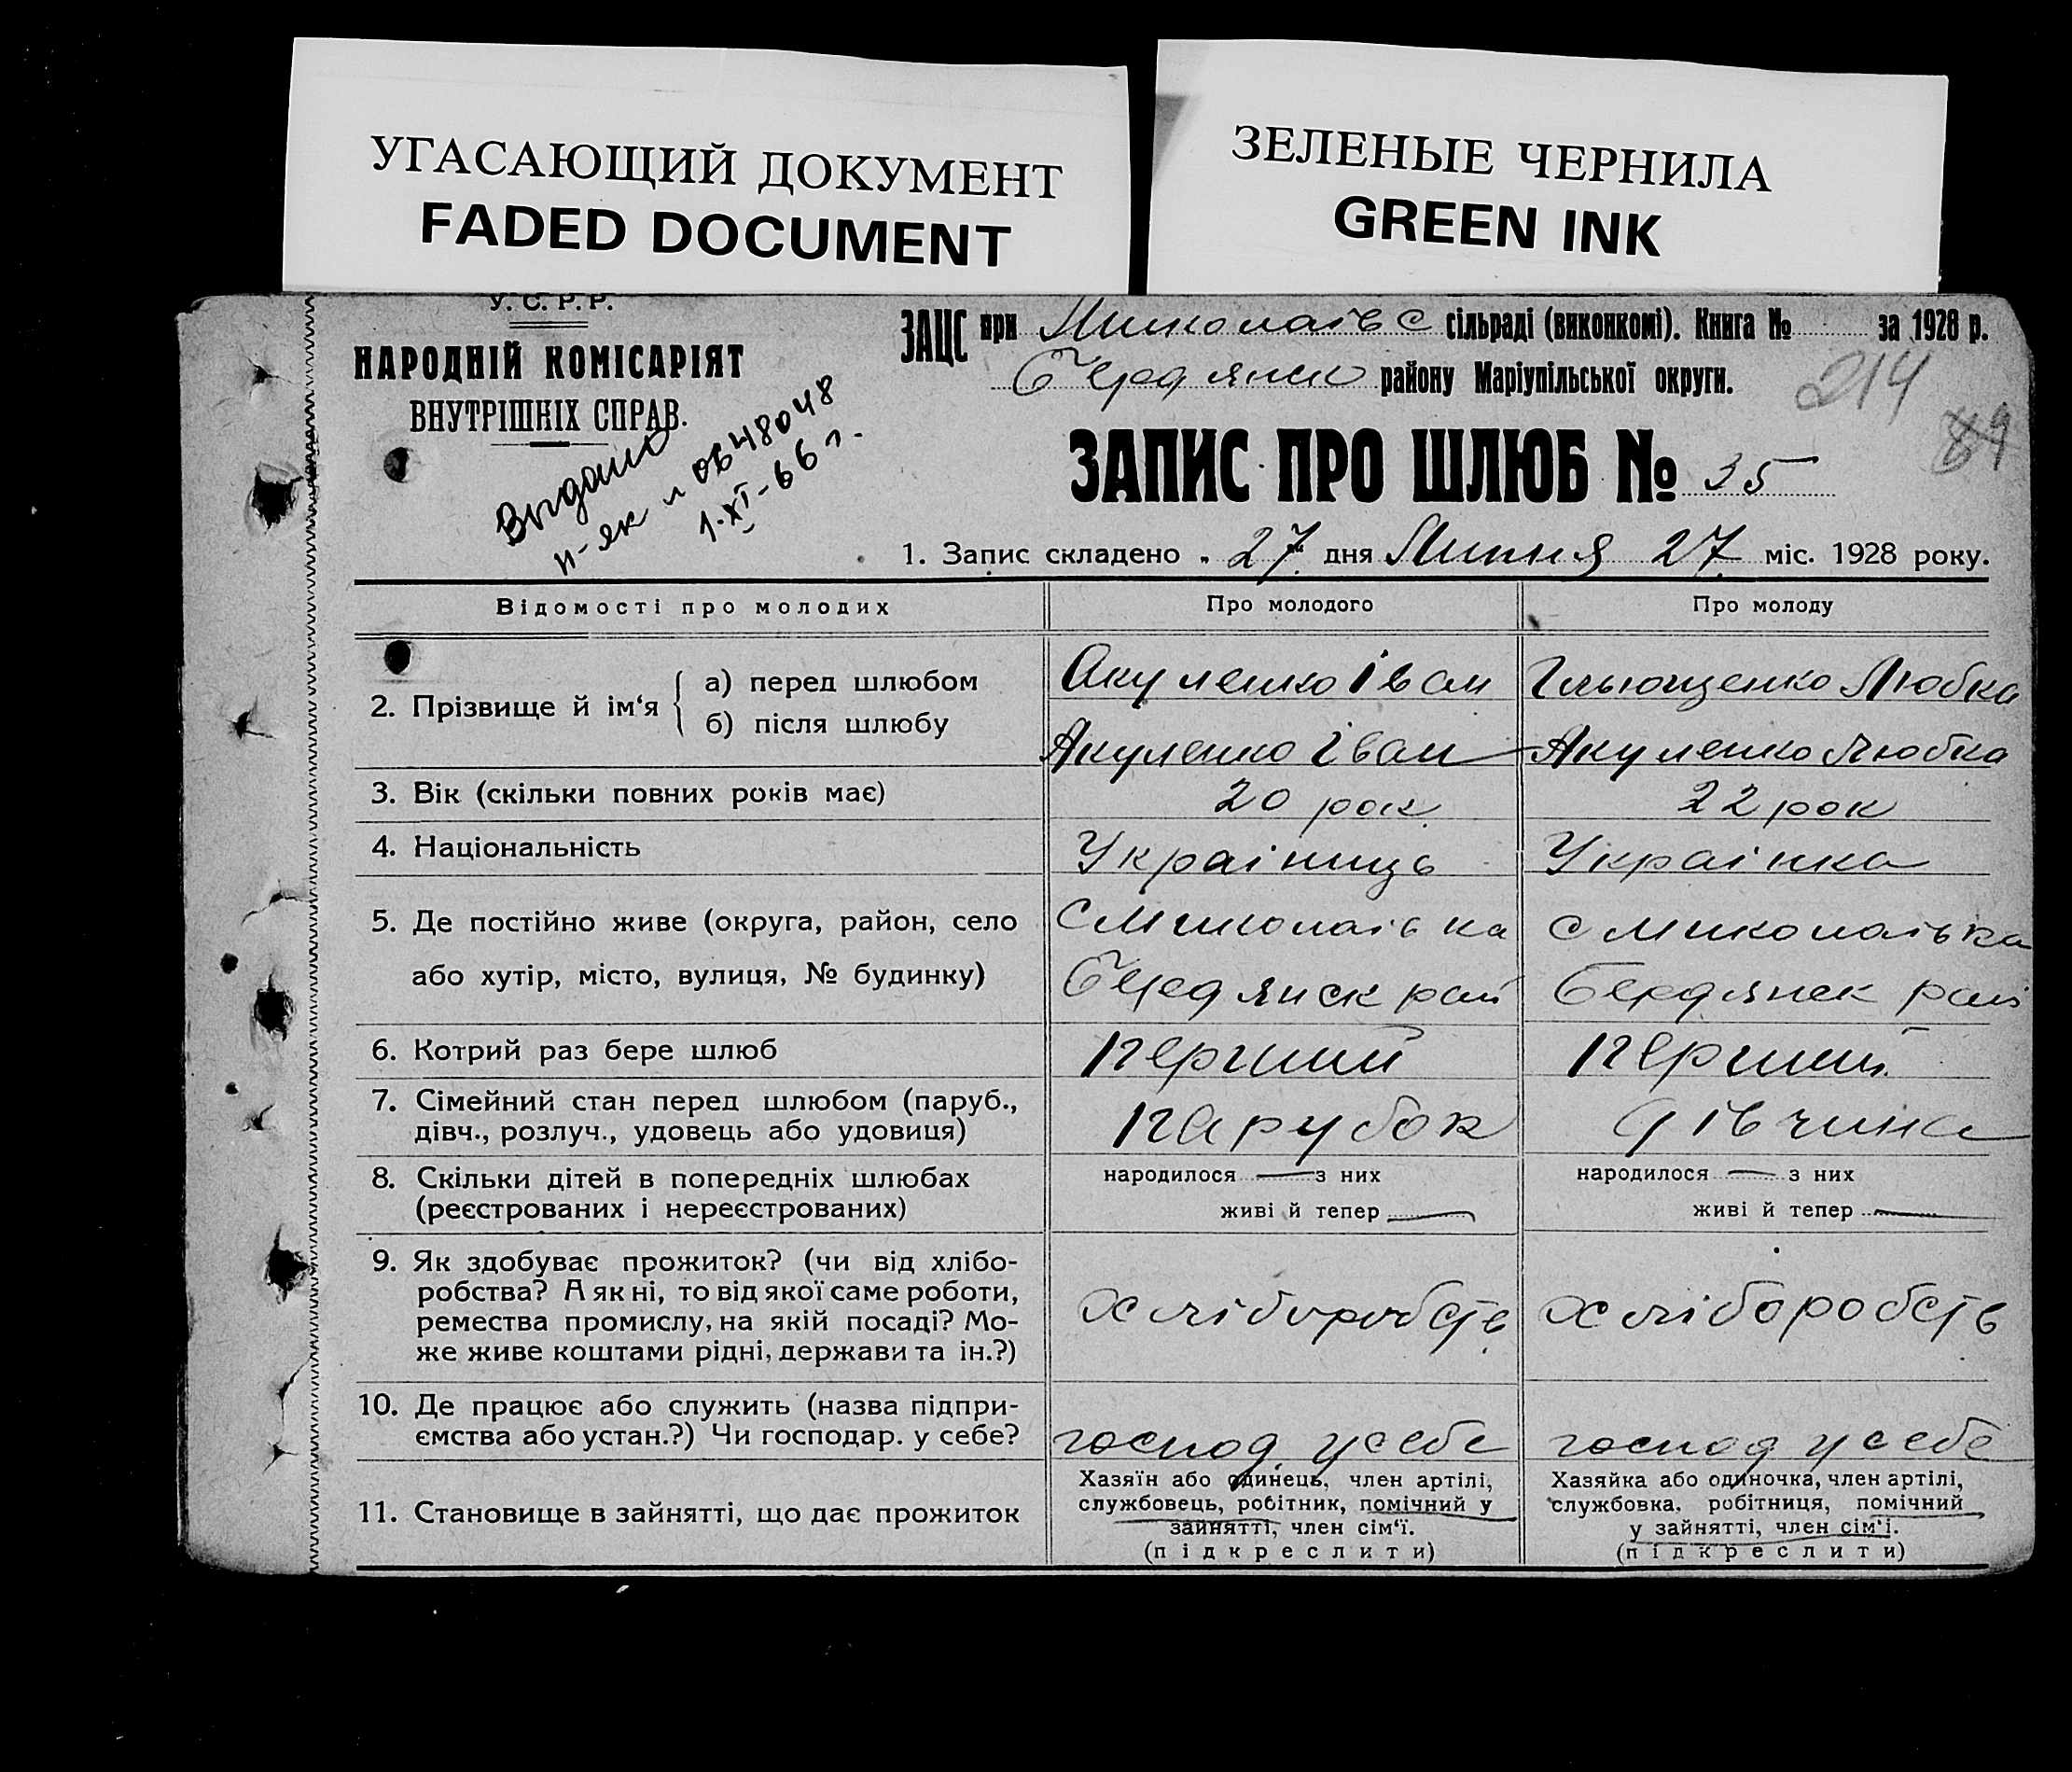 УГАСАЮЩИЙ ДОКУМЕНТ
FADED DOCUMENT
ЗЕЛЕНЫЕ ЧЕРНИЛА
GREEN INK
У. С. Р. Р.
НАРОДНІЙ КОМІСАРІЯТ
ВНУТРІШНІХ СПРАВ.
Видано
1. XI - 66 г.
ЗАЦС при Миколаівс сільраді (виконкомі). Книга № за 1928 р.
Бердянск району Маріупільської округи.
214
89
ЗАПИС ПРО ШЛЮБ № 35
1. Запис складено „ 27 дня Липня 27 міс. 1928 року.
Відомості про молодих Про молодого Про молоду
2. Прізвище й ім‘я
а) перед шлюбом Акуленко Іван Ільющенко Любка
б) після шлюбу Акуленко Іван Акуленко Любка
3. Вік (скільки повних років має) 20 рок 22 рок
4. Національність Украіниць Украінка
5. Де постійно живе (округа, район, село с Миколаівка с Миколаівка
або хутір, місто, вулиця, № будинку) Бердянск рай Бердянск рай
6. Котрий раз бере шлюб перший перший
7. Сімейний стан перед шлюбом (паруб.,
дівч., розлуч., удовець або удовиця) парубок дівчина
8. Скільки дітей в попередніх шлюбах народилося — з них народилося — з них
(реєстрованих і нереєстрованих) живі й тепер — живі й тепер —
9. Як здобуває прожиток? (чи від хлібо-
робства? А як ні, то від якої саме роботи,
ремества промислу, на якій посаді? Мо- хліборобств хліборобств
же живе коштами рідні, держави та ін.?)
10. Де працює або служить (назва підпри-
ємства або устан.?) Чи господар. у себе? господ у себе господ у себе
11. Становище в зайнятті, що дає прожиток
Хазяїн або одинець, член артілі,
службовець, робітник, помічний у
зайнятті, член сім‘ї.
(підкреслити)
Хазяйка або одиночка, член артілі,
службовка, робітниця, помічний
у зайнятті, член сім‘ї.
(підкреслити)